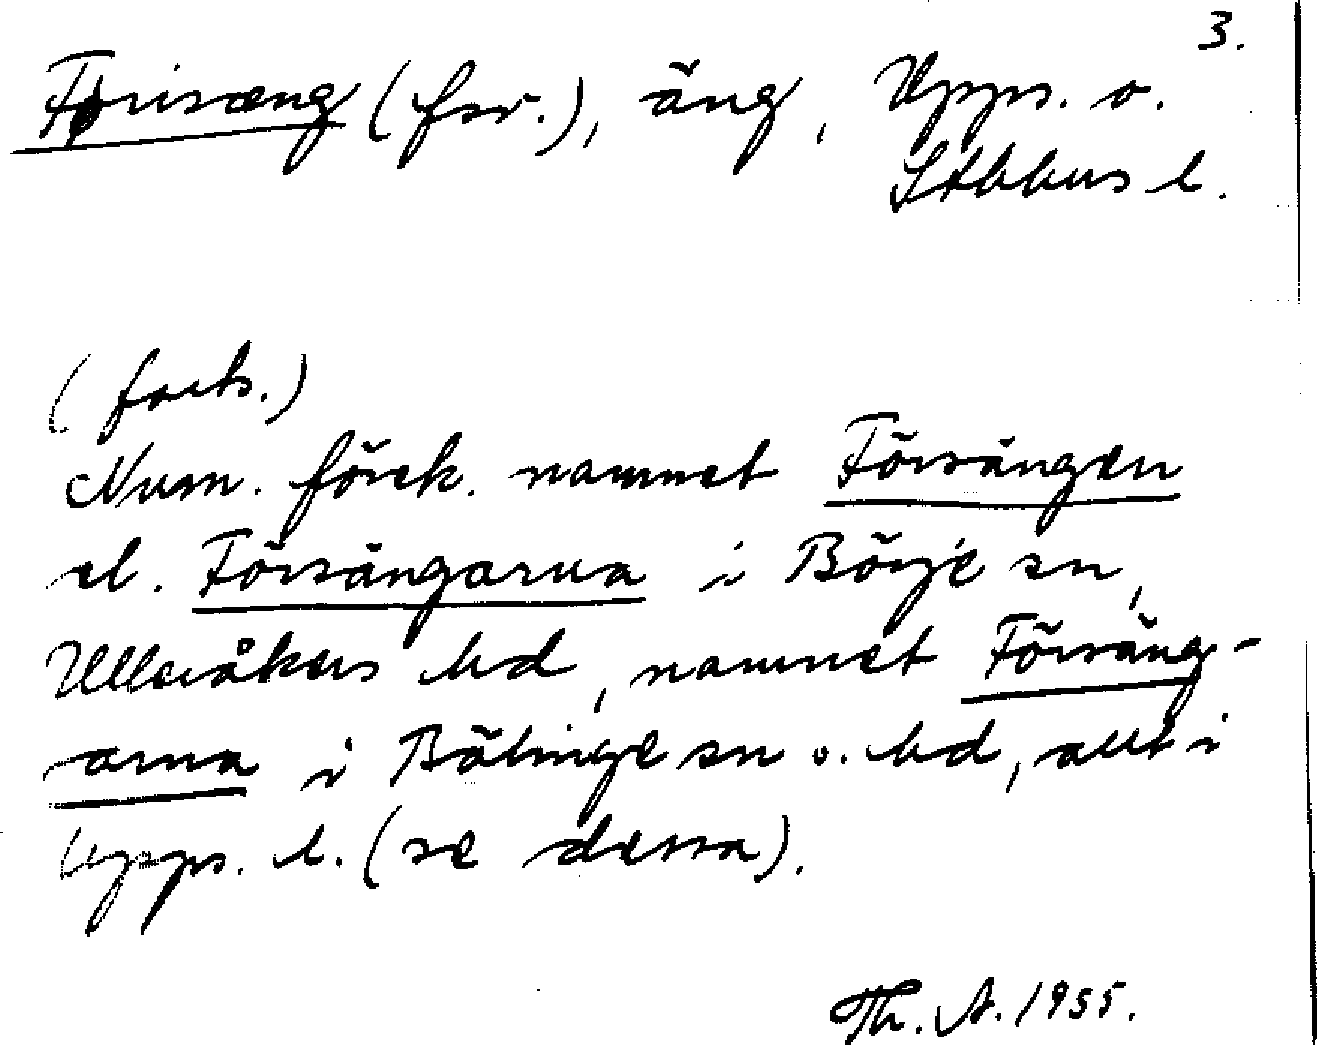 3.
Forisæng (fsv.), äng, Upps. o.
Sthlms l.
(forts.)
Num. förek. namnet Försängen
el. Försängarna i Börje sn,
Ulleråkers hd, namnet Försäng-
arna i Bälinge sn o. hd, allt i
Upps. l. (se dessa).
Th. A. 1955.